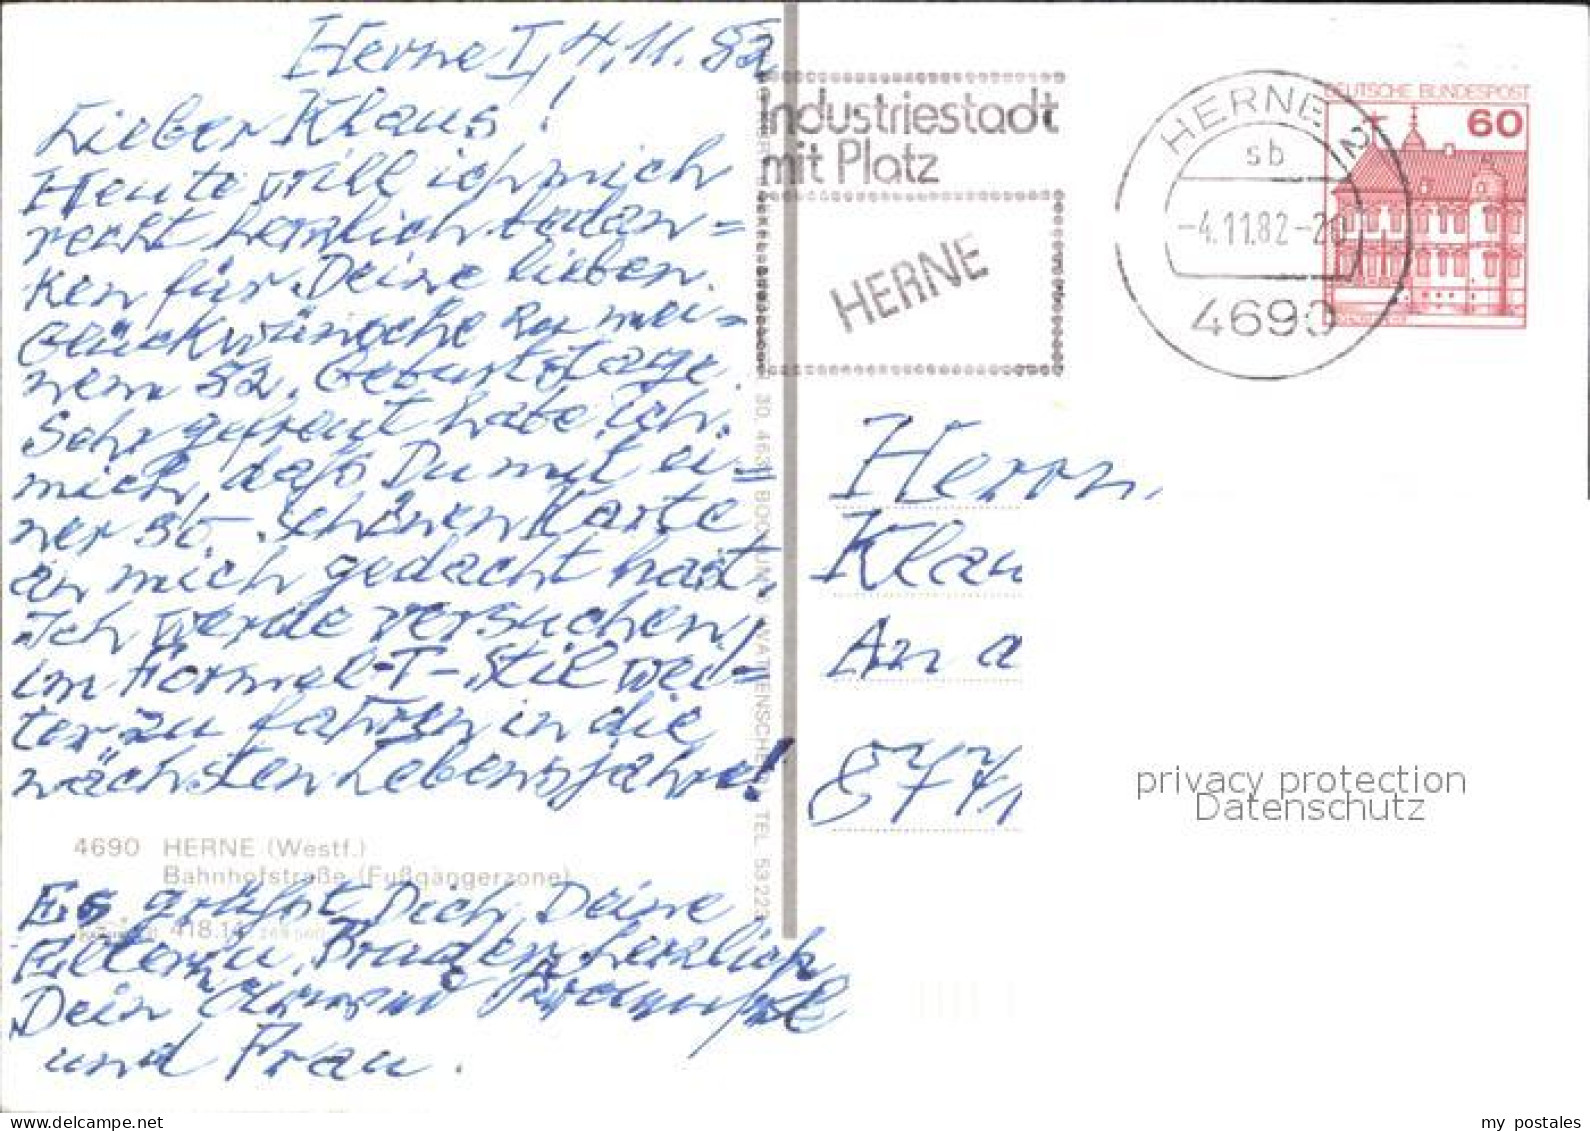 Herne I, 4.11.82
Lieber Klaus!
Heute will ich mich
recht herzlich bedan=
ken für Deine lieben
Glückwünsche zu mei=
nem 52. Geburtstage.
Sehr gefreut habe ich
mich, daß Du mit ei=
ner so schönen Karte
an mich gedacht hast.
Ich werde versuchen,
im Formel-1-Stil wei=
ter zu fahren in die
nächsten Lebensjahre!
4690 HERNE (Westf.)
Bahnhofstraße (Fußgängerzone)
418.14
Es grüßt Dich, Deine
Eltern u. Bruder herzlich
Dein
und Frau.
30, 463 BOCHUM 6 WATTENSCHEID TEL. 53223
Industriestadt
mit Platz
HERNE
HERNE 2
sb
-4.11.82-20
4690
DEUTSCHE BUNDESPOST
60
Herrn
Klau
An d
privacy protection
Datenschutz
my postales